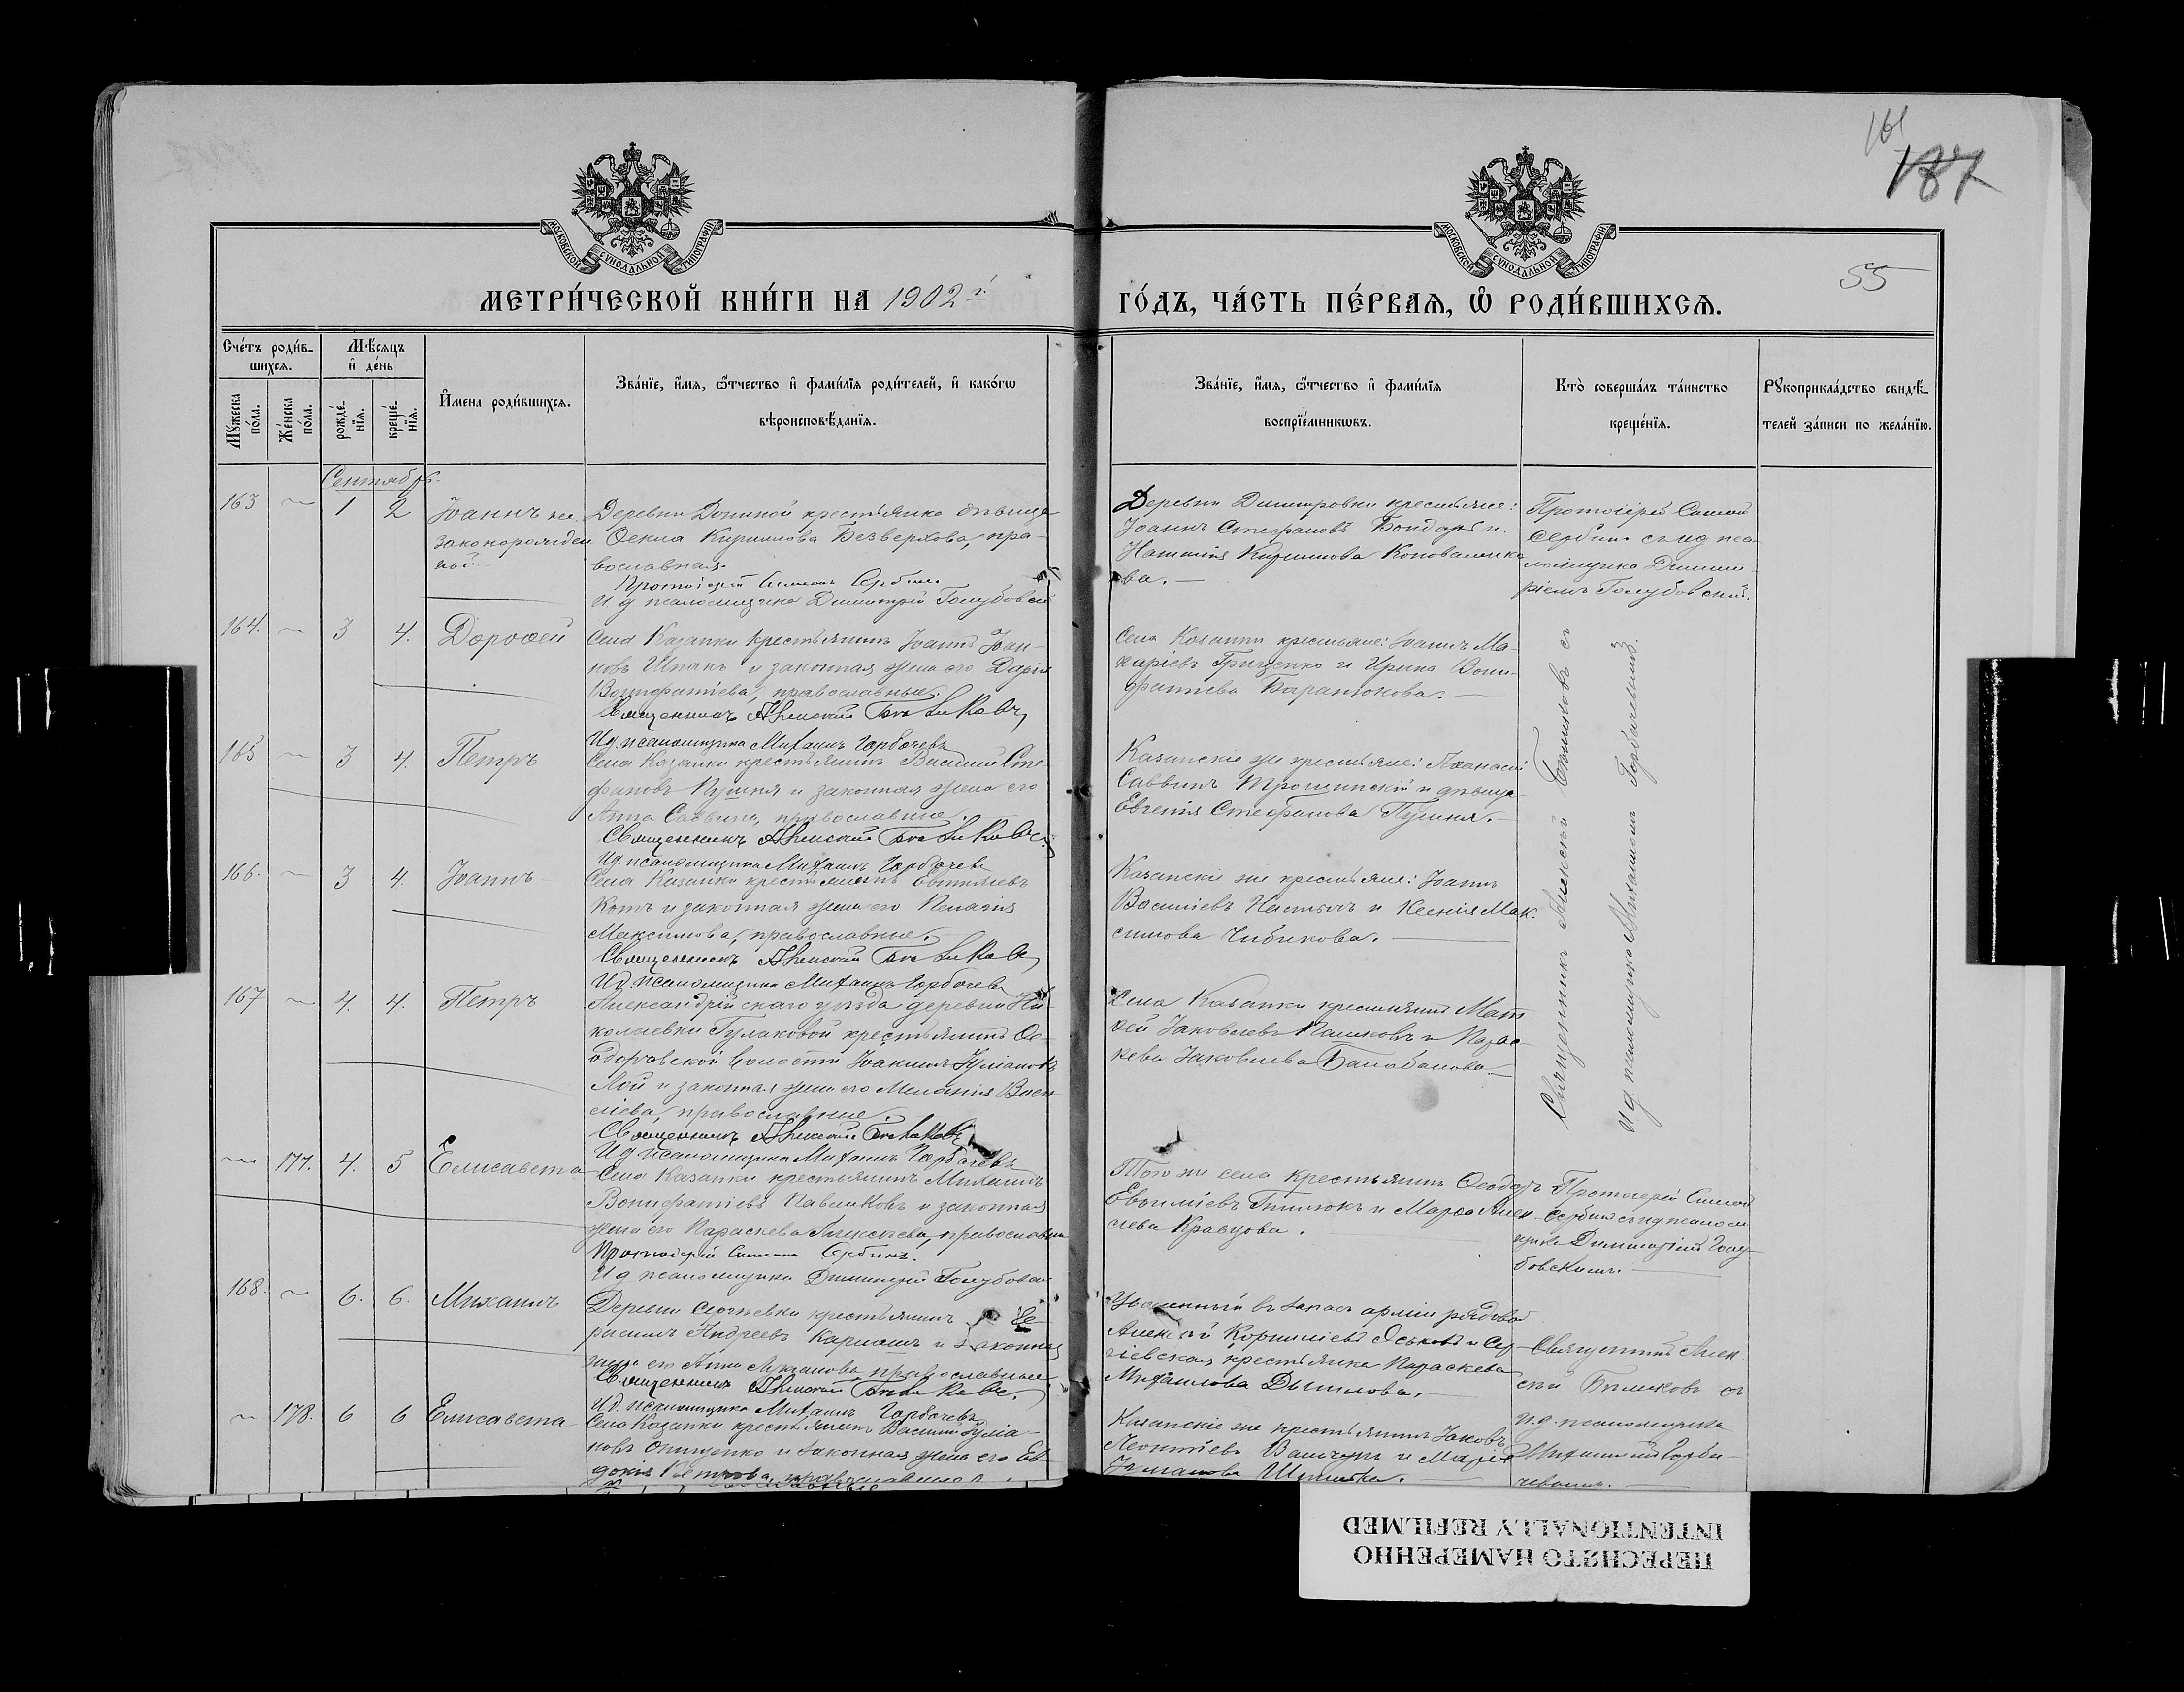 161
187
55
МОСКОВСКОЙ СУНОДАЛЬНОЙ ТИПОГРАФІИ
МОСКОВСКОЙ СУНОДАЛЬНОЙ ТИПОГРАФІИ
МЕТРИ́ЧЕСКОЙ КНИ́ГИ НА 1902 й
ГО́ДЪ, ЧА́СТЬ ПЕ́РВАѦ, Ѡ РОДИ́ВШИХСѦ.
Сче́тъ роди́в-
шихсѧ.
Мѣ́сѧцъ
и де́нь
Мꙋжеска по́ла.
Же́нска по́ла.
рожде́-нїѧ.
креще́-нїѧ.
И́мена роди́вшихсѧ.
Зва́нїе, и́мѧ, ѻ́тчество и фами́лїѧ роди́телей, и како́гѡ
вѣроисповѣ́данїѧ.
Зва́нїе, и́мѧ, ѻ́тчество и фами́лїѧ
воспрїе́мникѡвъ.
Кто̀ соверша́лъ та́инство
креще́нїѧ.
Рꙋкоприкла́дство свидѣ́-
телей за́писи по жела́нїю.
Сентябрь
163 ~ 1 2 Іоаннъ не-
законорожден
ный
Деревни Дониной крестьянка девица
Ѳекла Кириллова Безверхова, пра-
вославная.
Протоіерей Симеонъ Сербинъ
И д псаломщика Димитрій Голубовскій
Деревни Димитровки крестьяне:
Іоаннъ Стефановъ Бондарь и
Наталія Кириллова Коновалико
ва.
Протоіерей Симеон
Сербинъ съ ид пса-
ломщика Димит-
ріемъ Голубовский.
164. ~ 3 4. Дороѳей
Села Казанки крестьянинъ Іоаннъ Іоан-
новъ Шпакъ и законная жена его Дарія
Вонифатіева, православные.
Священникъ Алексій Бѣликовъ
Ид. псаломщика Михаилъ Горбачевъ
Села Казанки крестьяне: Іоаннъ Ма-
каріевъ Гриценко и Ирина Вони-
фатіева Баранюкова.
Священникъ Алексій Бѣликовъ съ
и д псаломщика Михаиломъ Горбачевымъ.
165 ~ 3 4. Петръ
Села Казанки крестьянинъ Василій Сте-
фановъ Пушня и законная жена его
Анна Саввина, православные.
Священникъ Алексій Бѣликовъ
Ид. псаломщика Михаилъ Горбачевъ
Казанскіе же крестьяне: Аѳанасій
Саввинъ Трощинскій и дѣвица
Евгенія Стефанова Пушня.
166. ~ 3 4. Іоаннъ
Села Казанки крестьянинъ Евѳиміевъ
Котъ и законная жена его Пелагія
Максимова, православные.
Священникъ Алексій Бѣликовъ
Ид. псаломщика Михаилъ Горбачевъ
Казанскіе же крестьяне: Іоаннъ
Василіевъ и Ксенія Мак-
симова Чибикова.
167 ~ 4. 4. Петръ
Александрійскаго уѣзда деревни Ни-
колаевки Гулаковой крестьянинъ Ѳе-
одоровской волости Іоакимъ Іуліановъ
Лой и законная жена его Меланія Васи-
ліева, православные.
Священникъ Алексій Бѣликовъ
И д псаломщика Михаилъ Горбачевъ
Села Казанки крестьянинъ Мат
ѳей Іаковлевъ Пашковъ и Парас-
кева Іаковлева Балабанова
~ 177. 4. 5 Елисавета
Села Казанки крестьянинъ Михаилъ
Вонифатіевъ Павликовъ и законная
жена его Параскева Алексѣева, православные
Протоіерей Симеонъ Сербинъ.
И д псаломщика Димитрій Голубовскій
Того же села крестьянинъ Ѳеодоръ
Евѳиміевъ и Марѳа Алек-
сѣева Кравцова.
Протоіерей Симеон
Сербинъ съ ид псалом
щика Димитріемъ Голу-
бовскимъ.
168. ~ 6. 6. Михаилъ
Деревни Сергѣевки крестьянинъ Ге-
расимъ Андреевъ и законная
жена его Анна Лукіанова православные
Священникъ Алексій Бѣликовъ.
И.д. псаломщика Михаилъ Горбачевъ
Уволенный въ запасъ арміи рядовой
Алексій Корниліевъ Яськовъ и Сер-
гіевская крестьянка Параскева
Михаилова Дымлова.
Священникъ Алек
сій Бѣликовъ съ
и.д. псаломщика
Михаиломъ Горба-
чевымъ.
~ 178. 6 6 Елисавета
Села Казанки крестьянинъ Василій Іуліа-
новъ Онищенко и законная жена его Ев-
докія Петрова, православные
Казанскіе же крестьянинъ Іаковъ
Леонтіевъ и Марія
Іуліанова
ПЕРЕСНЯТО НАМЕРЕННО
INTENTIONALLY REFILMED